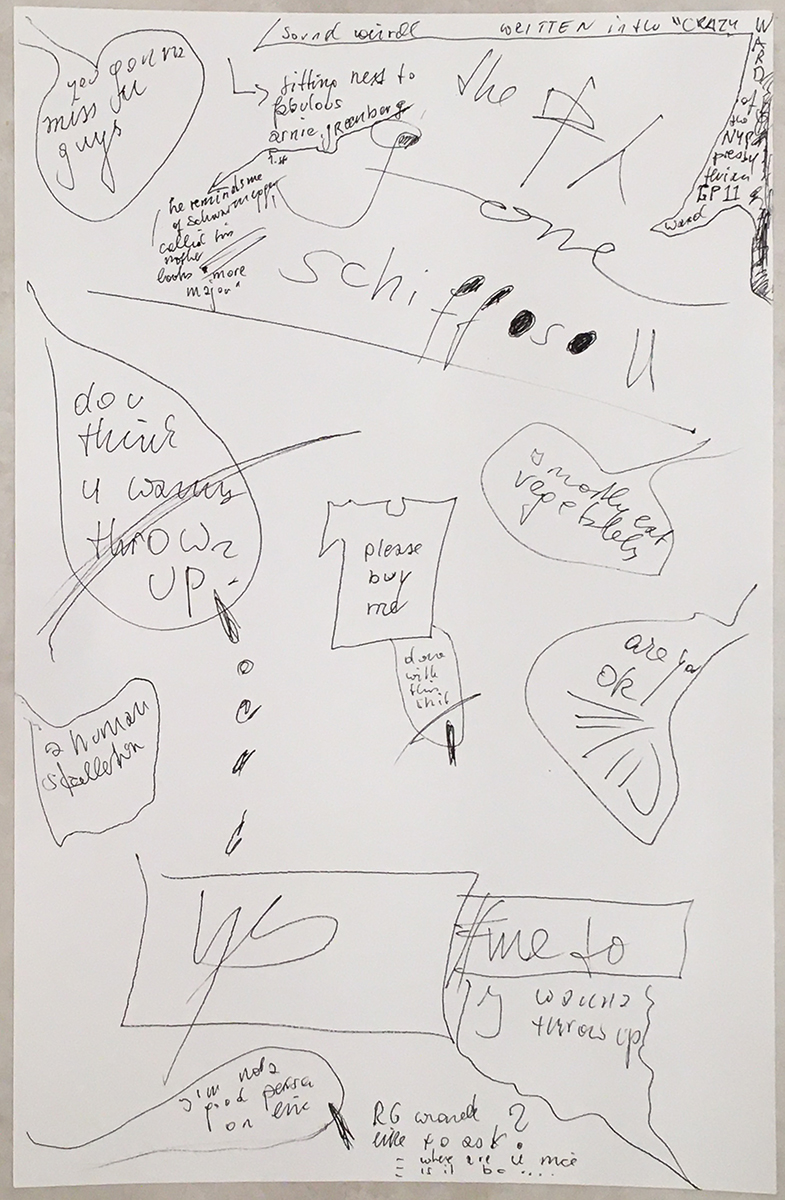 sound
WRITTEN in the "CRAZY
WARD
of
the
NYP
presby
GP11
ward
you gonna
miss
guys
sitting next to
fabulous
arnie greenberg
he reminds me
of
called his
mother
books "more
major"
the #1
one
schiffoso
U
do u
think
u wanna
throw
UP
mostly eat
vegetables
please
buy
me
done
with
this
shit
are
ok
a human
skalleton
ys
#me to
y wanna
throw up
y'm not a
good person
on
RG
like to ask?
- where are u
- is it